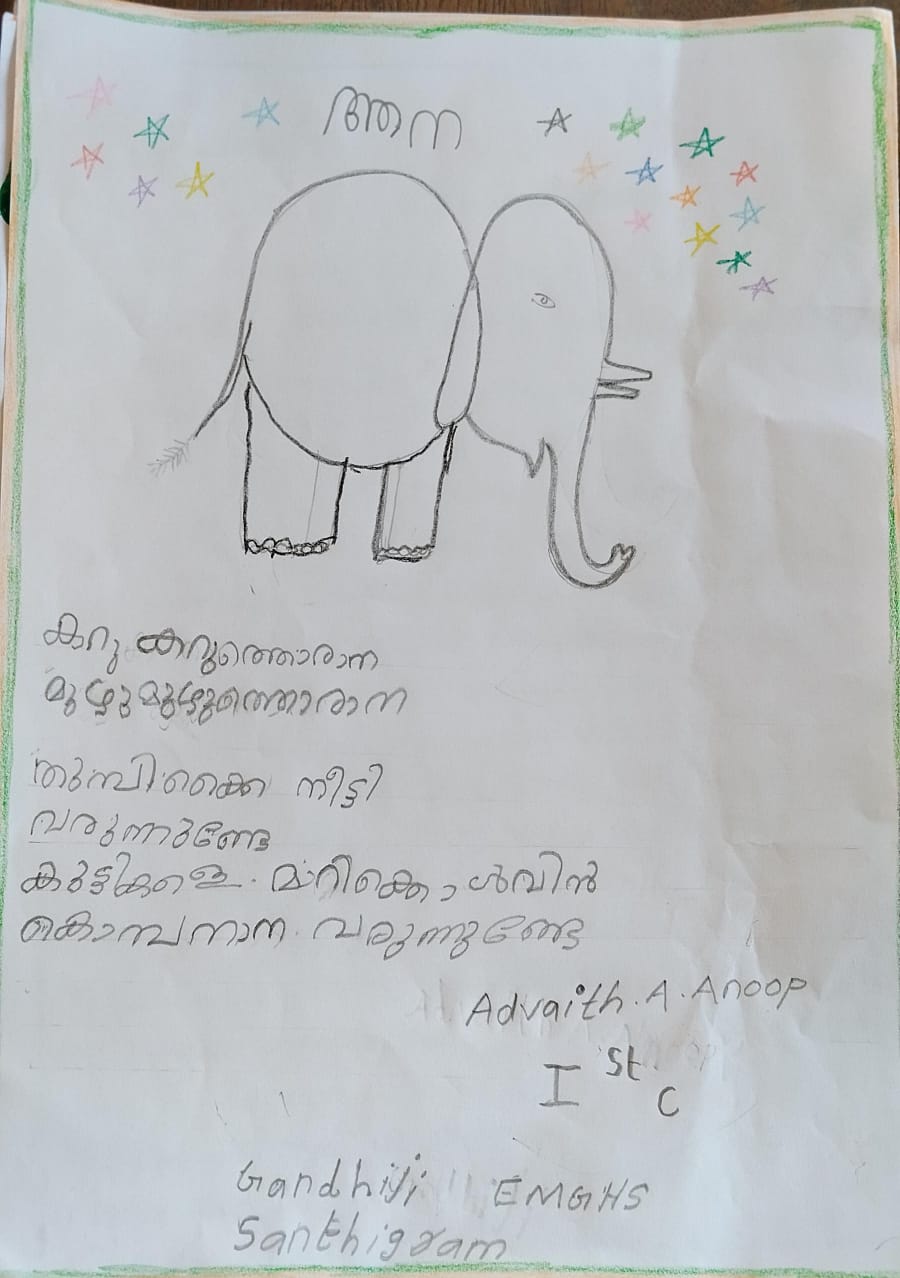 ആന
കറു കറുത്തൊരാന
മുഴുമുഴുത്തൊരാന
തുമ്പിക്കൈ നീട്ടി
വരുന്നുണ്ടേ
കുട്ടികളെ മാറിക്കൊൾവിൻ
കൊമ്പനാന വരുന്നുണ്ടേ
Advaith. A. Anoop
I St C
Gandhiji EMGHS
Santhigram